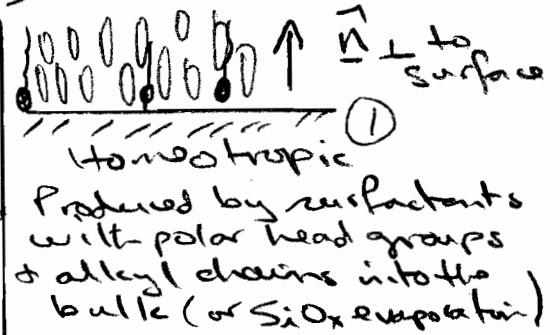 n ⊥ to
surface
①
Homeotropic
Produced by surfactants
with polar head groups
& alkyl chains into the
bulk (or SiOx evaporation)